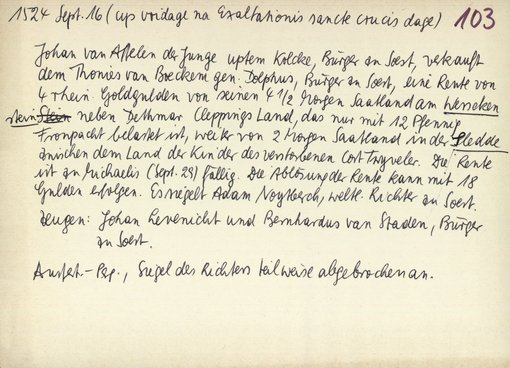 1524 Sept. 16 (up vridage na Exaltationis sancte crucis dage) 103
Johan van Asselen der Junge uptem Kolcke, Bürger an Soest, verkauft
dem Thonies van Breckem gen. Dolphus, Bürger an Soest, eine Rente von
4 rhein. Goldgulden von seinen 4 1/2 Morgen Saatland am Wesseken
stein neben Dethmar Cleppings Land, das nur mit 12 Pfennig
Fronpacht belastet ist, weiter von 2 Morgen Saatland in der Hledde
zwischen dem Land der Kinder des verstorbenen Cort. Die Rente
ist zu Michaelis (Sept. 29) fällig. Die Ablösung der Rente kann mit 18
Gulden erfolgen. Es siegelt Adam Noytberch, weltl. Richter zu Soest.
Zeugen: Johan Levenicht und Bernhardus van Staden, Bürger
zu Soest.
Ausf. - Pap., Siegel des Richters teilweise abgebrochen an.